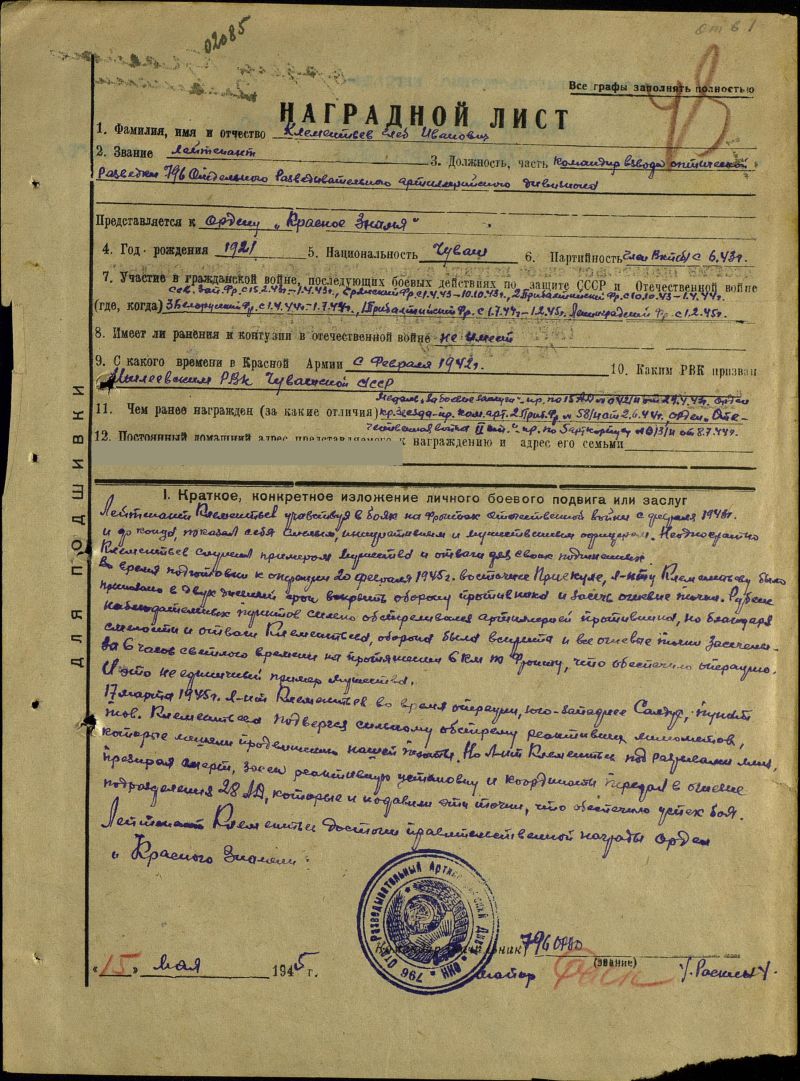 02085
Все графы заполнять полностью
НАГРАДНОЙ ЛИСТ
1. Фамилия, имя и отчество Клементьев Глеб Иванович
2. Звание лейтенант 3. Должность, часть командир взвода оптической
разведки 796 Отдельного Разведывательного артиллерийского дивизиона
Представляется к ордену „Красное Знамя"
4. Год рождения 1921 5. Национальность Чуваш 6. Партийность член ВКП(б) с 6.43г.
7. Участие в гражданской войне, последующих боевых действиях по защите СССР и Отечественной войне
Сев. Зап. Фр. с 15.2.43г–1.4.43г., Брянский Фр. с 1.4.43–10.10.43г., 2 Прибалтийский Фр. с 10.10.43–1.4.44г.
(где, когда) 3 Белорусский Фр. с 1.4.44–1.7.44г., 1 Прибалтийский Фр. с 1.7.44г–1.2.45г. Ленинградский Фр. с 1.2.45г.
8. Имеет ли ранения и контузии в отечественной войне не имеет
9. С какого времени в Красной Армии с февраля 1942г. 10. Каким РВК призван
РВК Чувашской АССР
Медаль „За боевые заслуги"-пр. по 15 АД от 24.4.43г. орден
11. Чем ранее награжден (за какие отличия) кр. звезда-пр. ком. арт. 2 Приб. Фр. № 58/н от 2.6.44г, орден „Оте-
чественная война II ст."-пр. по 5 арт. корпусу от 8.7.44г.
12. Постоянный домашний адрес представляемого к награждению и адрес его семьи
ДЛЯ ПОДШИВКИ
I. Краткое, конкретное изложение личного боевого подвига или заслуг
Лейтенант Клементьев участвуя в боях на фронтах отечественной войны с февраля
и до конца, показал себя смелым, инициативным и мужественным офицером. Неоднократно
Клементьев служил примером мужества и отваги для своих подчиненных
Во время подготовки к операции 20 февраля 1945г. восточнее Приекуле, л-нту Клементьеву было
приказано в двух дневный срок вскрыть оборону противника и засечь огневые точки. Рубеж
наблюдательных пунктов сильно обстреливался артиллерией противника, но благодаря
смелости и отваги Клементьева, оборона была вскрыта и все огневые точки засечены
за 6 часов светлого времени на протяжении 6 км по фронту, что обеспечило операцию.
И это не единичный пример мужества.
17 марта 1945г. л-нт Клементьев во время операции, юго-западнее Салдус, пункт
тов. Клементьева подвергся сильному обстрелу реактивных минометов,
которые мешали продвижению нашей пехоты. Но л-нт Клементьев под разрывами мин,
презирая смерть, засек реактивную установку и координаты передал в огневые
подразделения 28 АД, которые и подавили эти точки, что обеспечило успех боя.
Лейтенант Клементьев достоин правительственной награды орден
„Красного Знамени".
796 Отд. Разведывательный Артиллерийский Дивизион
Командир Начальник 796 ОРАД
(звание)
майор
„15" мая 1945 г.